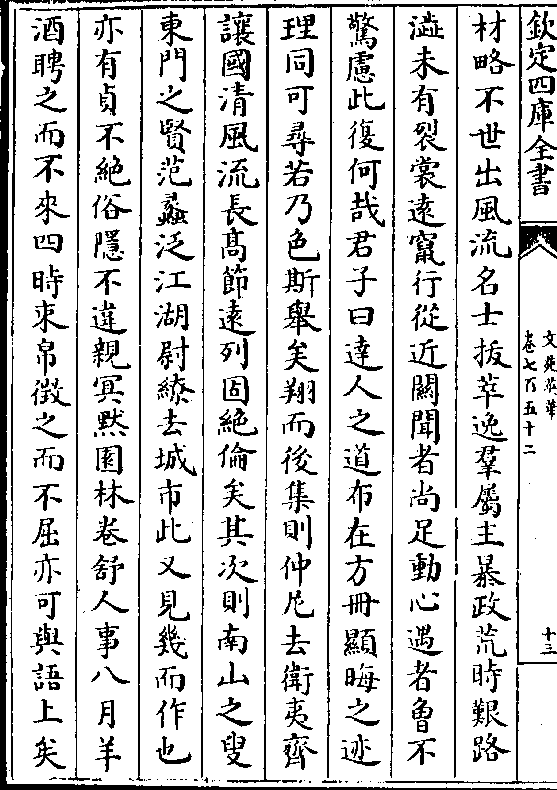 欽定四庫全書
文苑英華
卷七百五十二
十三
材略不世出風流名士拔萃逸羣屬主暴政荒時艱路
澁未有裂裳遠竄行從近闗聞者尚足動心遇者魯不
驚慮此復何哉君子曰達人之道布在方冊顯晦之迹
理同可尋若乃色斯舉矣翔而後集則仲尼去衛夷齊
讓國清風流長髙節逺列固絶倫矣其次則南山之叟
東門之賢范蠡泛江湖尉繚去城市此又見幾而作也
亦有貞不絶俗隱不違親冥黙園林卷舒人事八月羊
酒聘之而不來四時束帛徵之而不屈亦可與語上矣